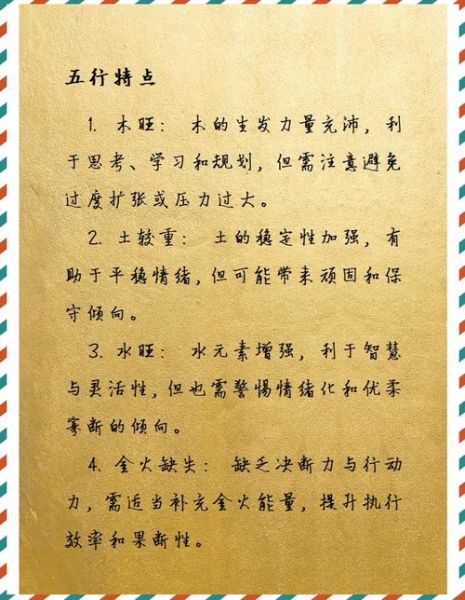 五行特点
1. 木旺： 木的生发力量充沛，利
于思考、学习和规划，但需注意避免
过度扩张或压力过大。
2. 土较重： 土的稳定性加强，有
助于平稳情绪，但可能带来顽固和保
守倾向。
3. 水旺： 水元素增强，利于智慧
与灵活性，但也需警惕情绪化和优柔
寡断的倾向。
4. 金火缺失： 缺乏决断力与行动
力，需适当补充金火能量，提升执行
效率和果断性。